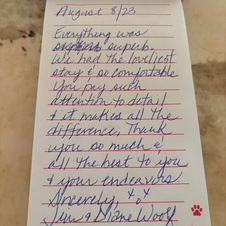 August 8/23
Everything was
superb.
We had the loveliest
stay & so comfortable
You pay such
attention to detail
& it makes all the
difference. Thank
you so much &
all the best to you
& your endeavors.
Sincerely,
& Diane Woolf